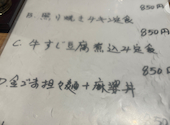 850円
B. 照り焼きチキン定食
850円
C. 牛すじ豆腐煮込み定食
850円
D. 金ごま担々麺+麻婆丼